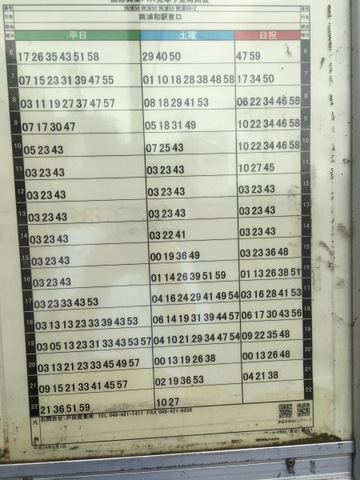 南浦和駅東口
平日 土曜 日祝
6 17 26 35 43 51 58 29 40 50 47 59
7 07 15 23 31 39 47 55 01 10 18 28 38 48 58 17 34 50
8 03 11 19 27 37 47 57 08 18 29 41 53 06 22 34 46 58
9 07 17 30 47 05 18 31 49 10 22 34 46 58
10 05 23 43 07 25 43 10 22 34 46 58
11 03 23 43 03 23 43 10 27 45
12 03 23 43 03 23 43 03 23 43
13 03 23 43 03 23 43 03 23 43
14 03 23 43 03 22 41 03 23 43
15 03 23 43 00 19 36 49 03 23 36 48
16 03 23 43 01 14 26 39 51 59 01 13 26 38 51
17 03 23 33 43 53 04 16 24 29 41 49 54 03 16 28 41 53
18 03 13 13 23 33 39 43 53 06 14 19 31 39 44 57 06 17 30 43 56
19 03 05 13 23 31 33 43 53 57 04 10 21 29 34 47 54 09 22 35 48
20 03 13 21 23 33 45 49 57 00 13 19 26 38 00 13 26 48
21 09 15 21 33 41 45 57 02 19 36 53 04 21 38
22 21 36 51 59 10 27
お問合せ：戸田営業所 TEL 048-421-1411 FAX 048-421-8258
凡例